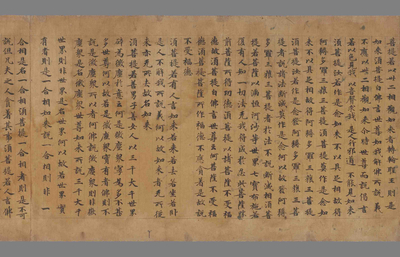 菩提若以三十二相觀如來者轉輪聖王則是
如來須菩提白佛言世尊如我解佛所說義
不應以三十二相觀如來爾時世尊而說偈言
若以色見我以音聲求我是人行邪道不能見如來
須菩提汝若作是念如來不以具足相故得
阿耨多羅三藐三菩提須菩提莫作是念如
來不以具足相故得阿耨多羅三藐三菩提
須菩提汝若作是念發阿耨多羅三藐三菩
提者說諸法斷滅莫作是念何以故發阿耨
多羅三藐三菩提心者於法不說斷滅相須
菩提若菩薩以滿恒河沙等世界七寶布施
若復有人知一切法无我得成於忍此菩薩勝
前菩薩所得功德須菩提以諸菩薩不受福
德故須菩提白佛言世尊云何菩薩不受福
德須菩提菩薩所作福德不應貪著是故說
不受福德
須菩提若有人言如來若來若去若坐若臥
是人不解我所說義何以故如來者无所從
來亦无所去故名如來
須菩提若善男子善女人以三千大千世界
碎為微塵於意云何是微塵衆寧為多不甚
多世尊何以故若是微塵衆實有者佛則不
說是微塵衆所以者何佛說微塵衆則非微
塵衆是名微塵衆世尊如來所說三千大千
世界則非世界是名世界何以故若世界實
有者則是一合相如來說一合相則非一
合相是名一合相須菩提一合相者則是不可
說但凡夫之人貪著其事須菩提若人言佛